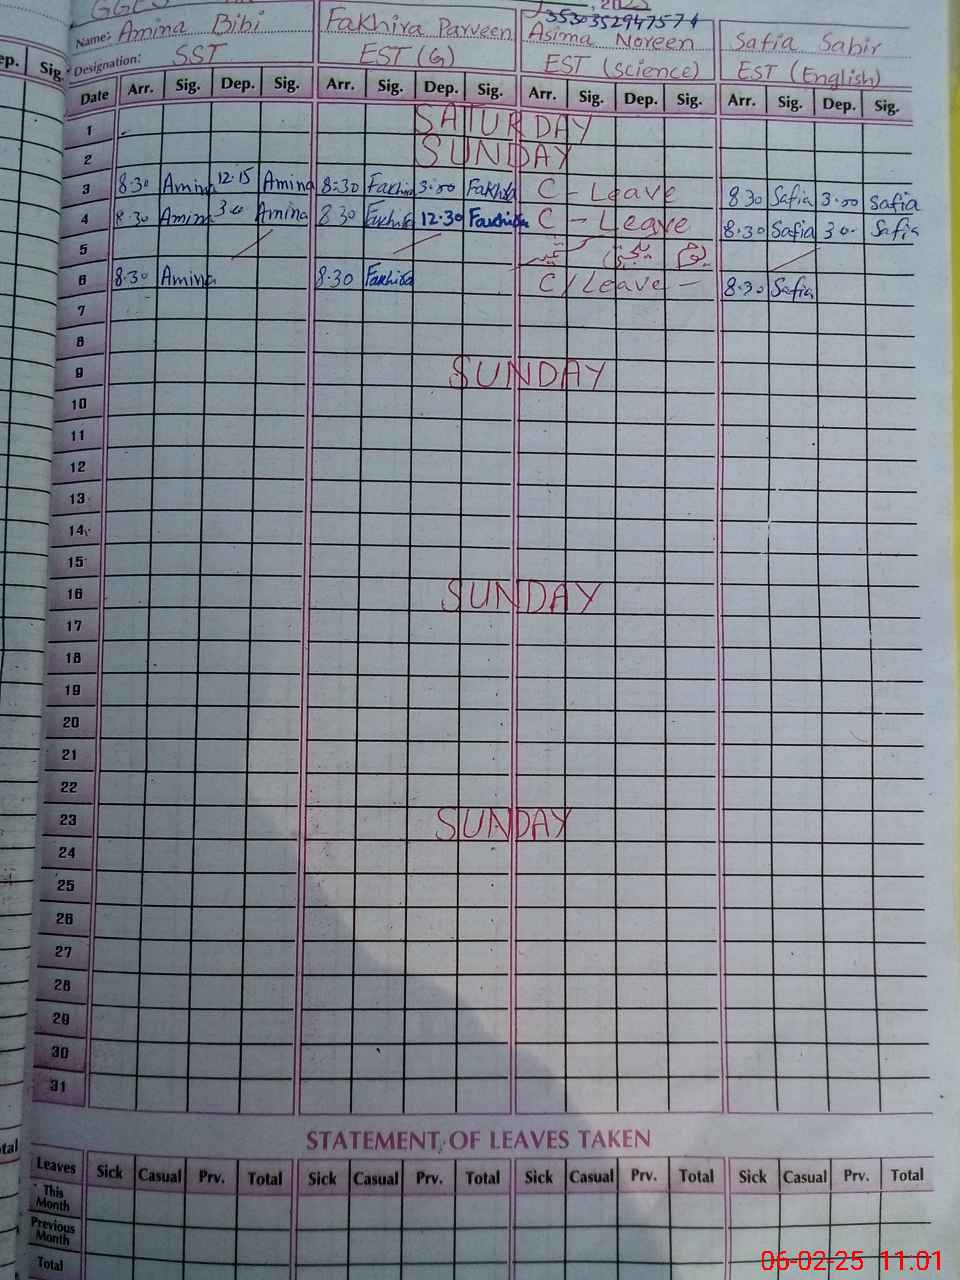 GGES
3530352947574
, 2025
Name: Amina Bibi Fakhira Parveen Asima Noreen Safia Sabir
Designation: SST EST (G) EST (Science) EST (English)
ep. Sig.
Date Arr. Sig. Dep. Sig. Arr. Sig. Dep. Sig. Arr. Sig. Dep. Sig. Arr. Sig. Dep. Sig.
1 SATURDAY
2 SUNDAY
3 8:30 Amina 12:15 Amina 8:30 Fakhira 3:00 Fakhira C - Leave 8:30 Safia 3:00 Safia
4 8:30 Amina 3:0 Amina 8:30 Fakhira 12:30 Fakhira C - Leave 8:30 Safia 3:0- Safia
5 یوم یکجہتی کشمیر
6 8:30 Amina 8:30 Fakhira C/Leave - 8:30 Safia
7
8
9 SUNDAY
10
11
12
13
14
15
16 SUNDAY
17
18
19
20
21
22
23 SUNDAY
24
25
26
27
28
29
30
31
STATEMENT OF LEAVES TAKEN
otal
Leaves Sick Casual Prv. Total Sick Casual Prv. Total Sick Casual Prv. Total Sick Casual Prv. Total
This Month
Previous Month
Total
06-02-25 11.01